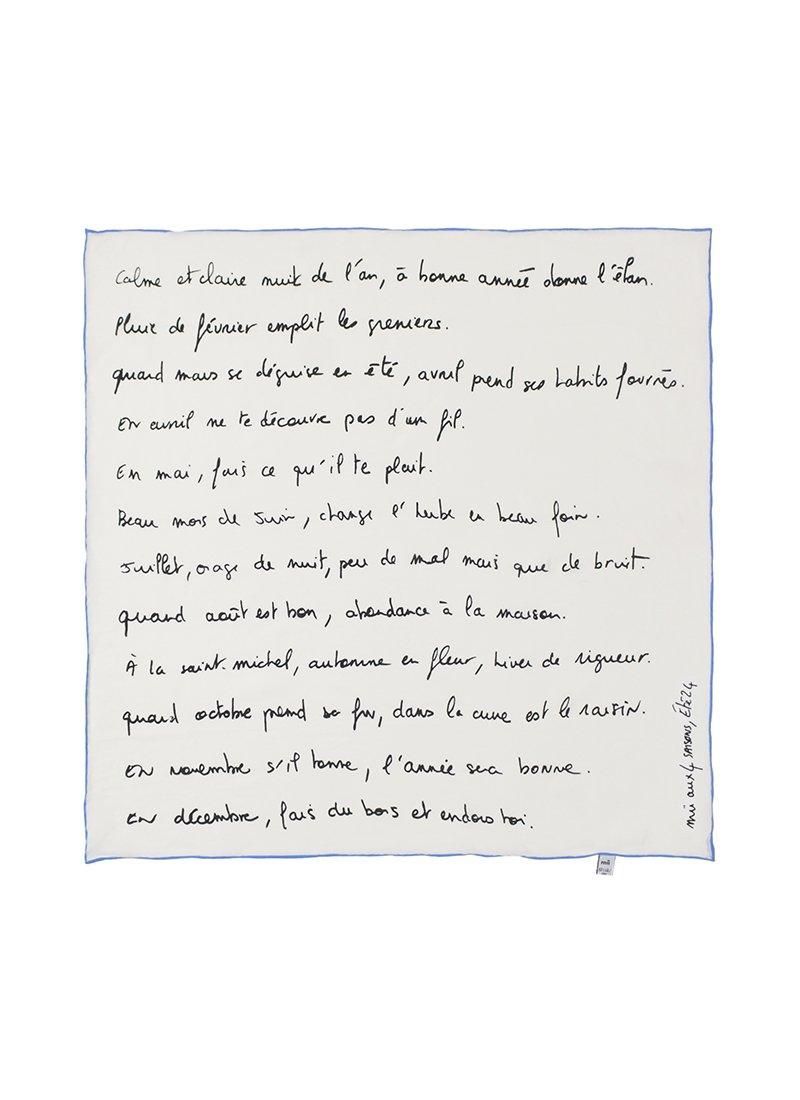 Calme et claire nuit de l'an, à bonne année donne l'élan.
Pluie de février emplit les greniers.
quand mars se déguise en été, avril prend ses habits fourrés.
En avril ne te découvre pas d'un fil.
En mai, fais ce qu'il te plait.
Beau mois de Juin, change l'herbe en beau foin.
Juillet, orage de nuit, peu de mal mais que de bruit.
quand août est bon, abondance à la maison.
À la saint-michel, automne en fleur, hiver de rigueur.
quand octobre prend sa fin, dans la cuve est le raisin.
En novembre s'il tonne, l'année sera bonne.
En décembre, fais du bois et endors toi.
mii aux 4 saisons, Été 24
mii